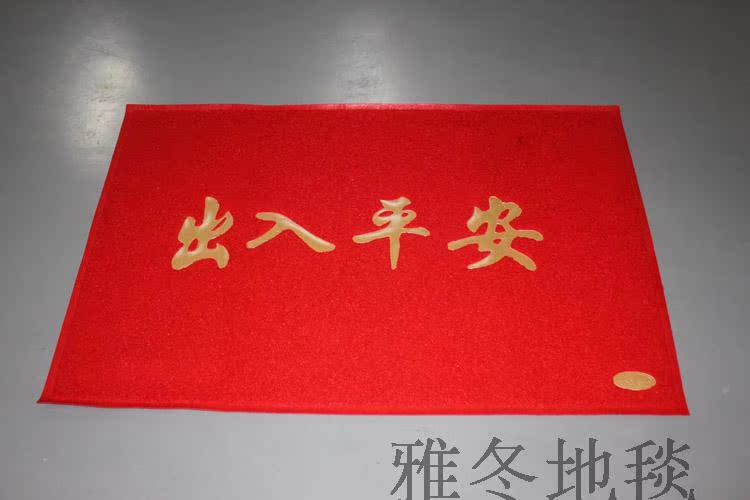 出入平安
雅冬地毯